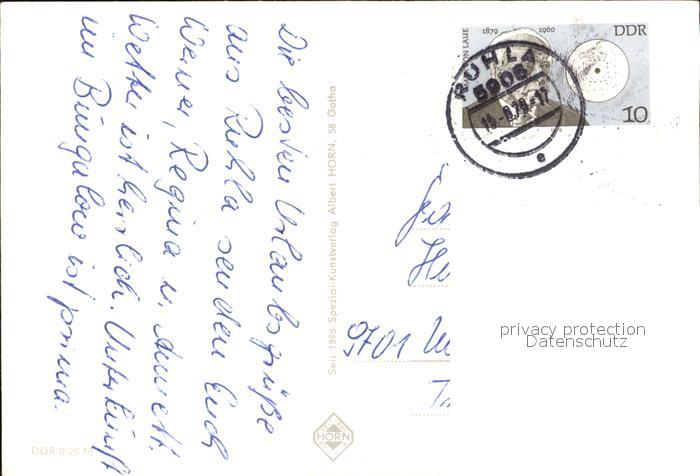 Die besten Urlaubsgrüße
aus Ruhla senden Euch
Werner, Regina u. Annett.
Wetter ist herrlich. Unterkunft
im Bungalow ist prima.
Seit 1898 Spezial-Kunstverlag Albert HORN, 58 Gotha
HORN
DDR 0,20 M
VON LAUE 1879 1960 DDR
10
RUHLA
5906
e
9701
privacy protection
Datenschutz